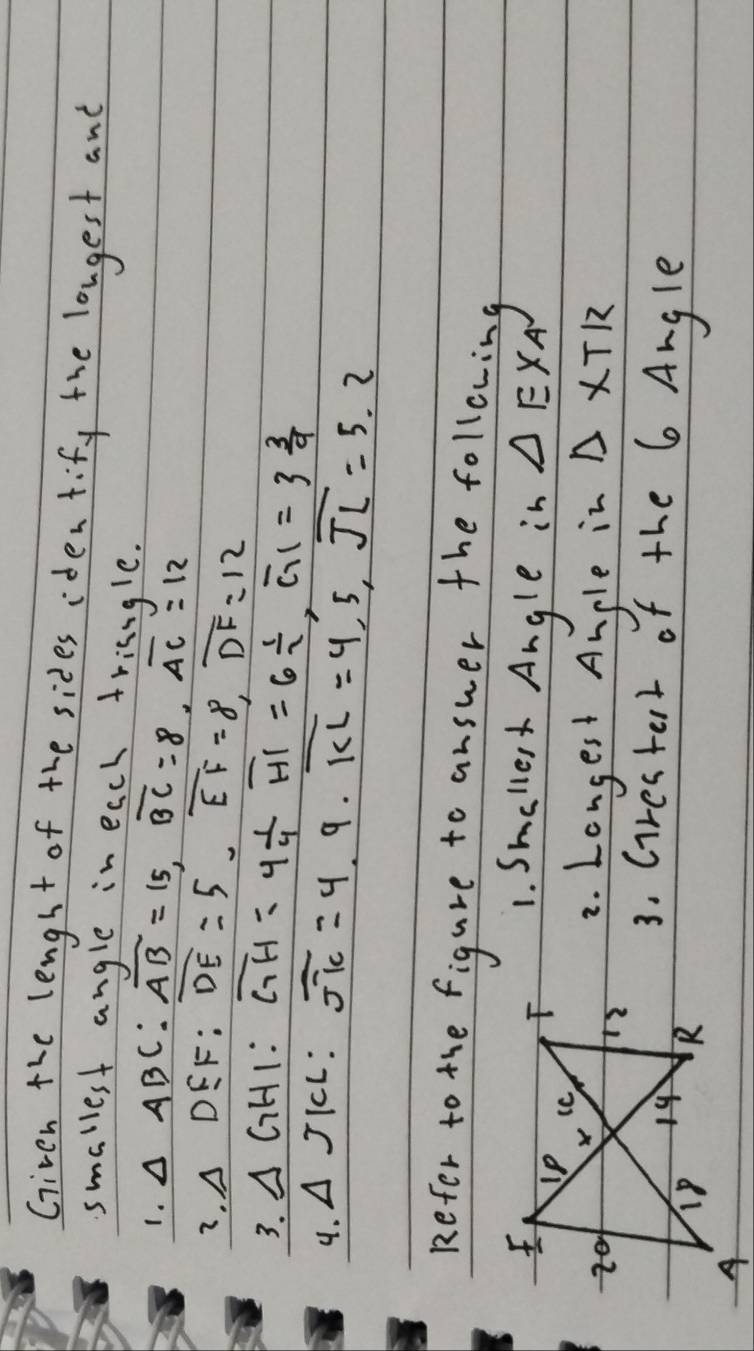 Given the lenght of the sides identify the longest and
smallest angle in each triangle.
1. Δ ABC: AB = 15, BC = 8, AC = 12
2. Δ DEF: DE = 5, EF = 8, DF = 12
3. Δ GHI: GH = 4 1/4 HI = 6 1/2, GI = 3 3/4
4. Δ JKL: JK = 4.9. KL = 4,5, JL = 5.2
Refer to the figure to answer the following
1. Smallest Angle in Δ EXA
2. Longest Angle in Δ XTR
3. Greatest of the 6 Angle
E
T
18
X
20
12
14
18
A
R